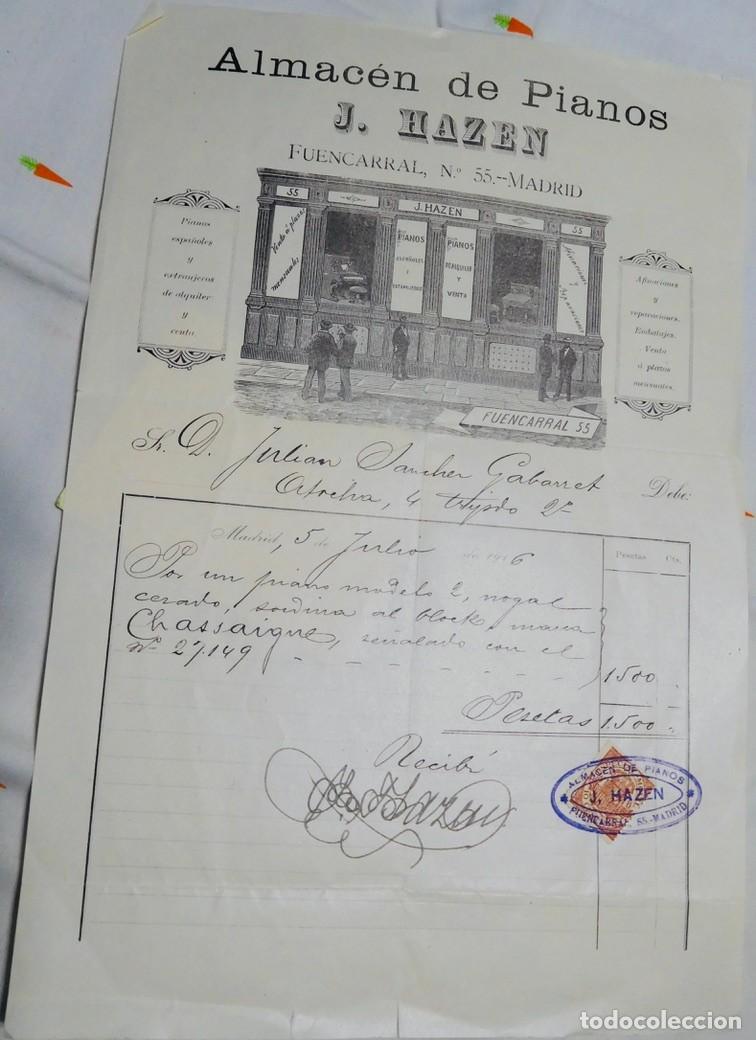 Almacén de Pianos
J. HAZEN
FUENCARRAL, Nº 55.--MADRID
Pianos
españoles
y
extranjeros
de alquiler
y
venta
55
J. HAZEN
55
Venta á plazos
mensuales
PIANOS
ESPAÑOLES Y
EXTRANJEROS
PIANOS
DE ALQUILER
Y
VENTA
Afinaciones y
Reparaciones
FUENCARRAL 55
Afinaciones
y
reparaciones.
Embalajes.
Venta
á plazos
mensuales.
Sr. D. Julian Sanchez Gabarret Debe:
Atocha, 4 2º
Madrid, 5 de Julio de 1916
Pesetas Cts.
Por un piano modelo 2, nogal
cerado, sordina al block, marca
Chassaigne, señalado con el
Nº 27.149 1500
Pesetas 1.500
Recibí
J. Hazen
ALMACÉN DE PIANOS
J. HAZEN
FUENCARRAL, 55.-MADRID
todocoleccion